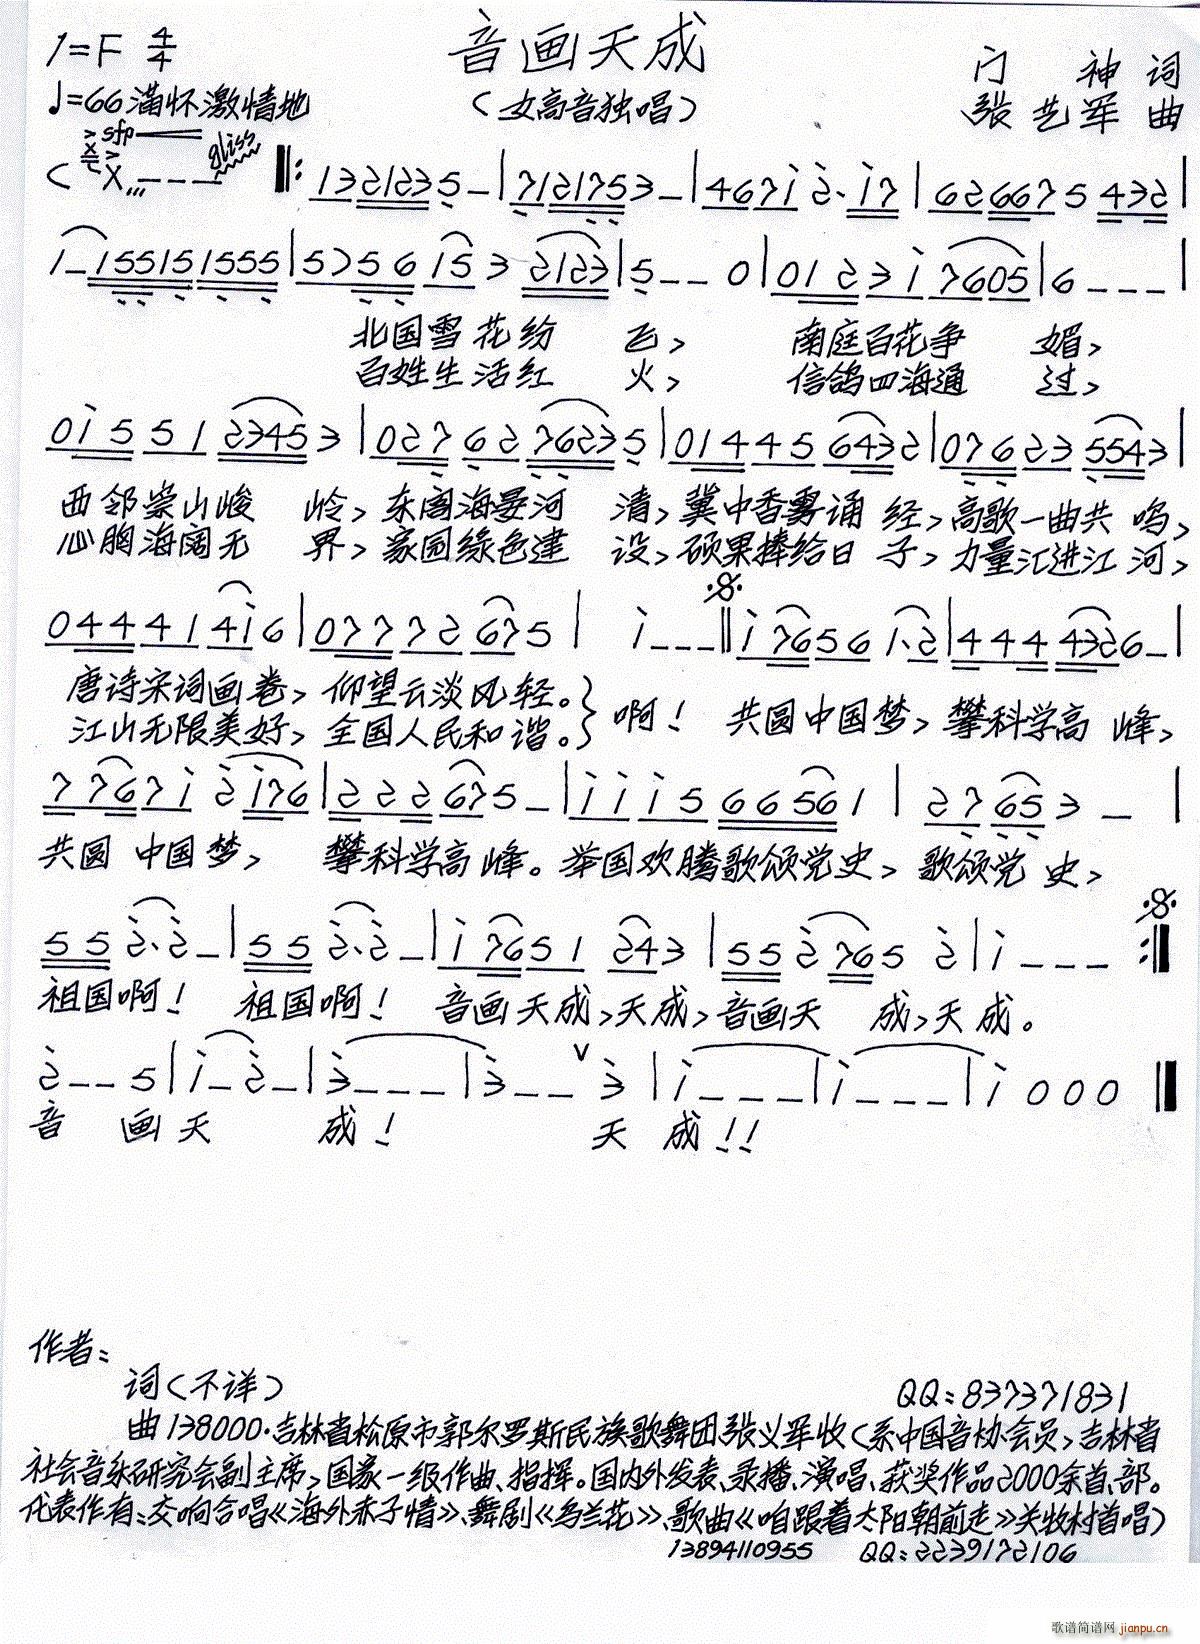 音画天成
1=F 4/4
♩=66 满怀激情地
(女高音独唱)
门 神 词
张艺军 曲
sfp gliss
132123 5 – | 7121753 – | 467i 2· i7 | 626675 432 |
1 – 155151555 | 5 7 5 6 i5 3 2123 | 5 – – 0 | 01 23 i 7605 | 6 – – – |
北国雪花纷 飞, 南庭百花争 媚,
百姓生活红 火, 信鸽四海通 过,
0i5 51 23453 | 027 62 76235 | 014 45 6432 | 076 23 5543 |
西邻崇山峻 岭, 东阁海晏河 清, 冀中香雾诵 经, 高歌一曲共 鸣,
心胸海阔无 界, 家园绿色建 设, 硕果捧给日 子, 力量汇进江 河,
044 41 4i6 | 077 72 675 | i – – – || i 765 6 1·2 | 444 4326 – |
唐诗宋词画 卷, 仰望云淡风轻。} 啊! 共圆中国梦, 攀科学高 峰,
江山无限美好, 全国人民和 谐。
7 767i 2 i76 | 222 675 – | iii5 66561 | 27 65 3 – |
共圆 中国梦, 攀科学高峰。举国欢腾歌颂党史, 歌颂党 史,
55 2·2 – | 55 2·2 – | i 7651 243 | 552 765 2 | i – – – :||
祖国啊! 祖国啊! 音画天成,天成,音画天 成,天成。
2 – – 5 | i – 2 – | 3 – – – | 3 – – 3 | i – – – | i – – – | i 0 0 0 ||
音 画天 成! 天 成!!
作者:
词(不详)
QQ:837371831
曲138000·吉林省松原市郭尔罗斯民族歌舞团张义军收(系中国音协会员,吉林省
社会音乐研究会副主席,国家一级作曲、指挥。国内外发表、录播、演唱、获奖作品2000余首、部。
代表作有:交响合唱《海外赤子情》、舞剧《乌兰花》、歌曲《咱跟着太阳朝前走》关牧村首唱)
13894110955 QQ:2239172106
歌谱简谱网 jianpu.cn